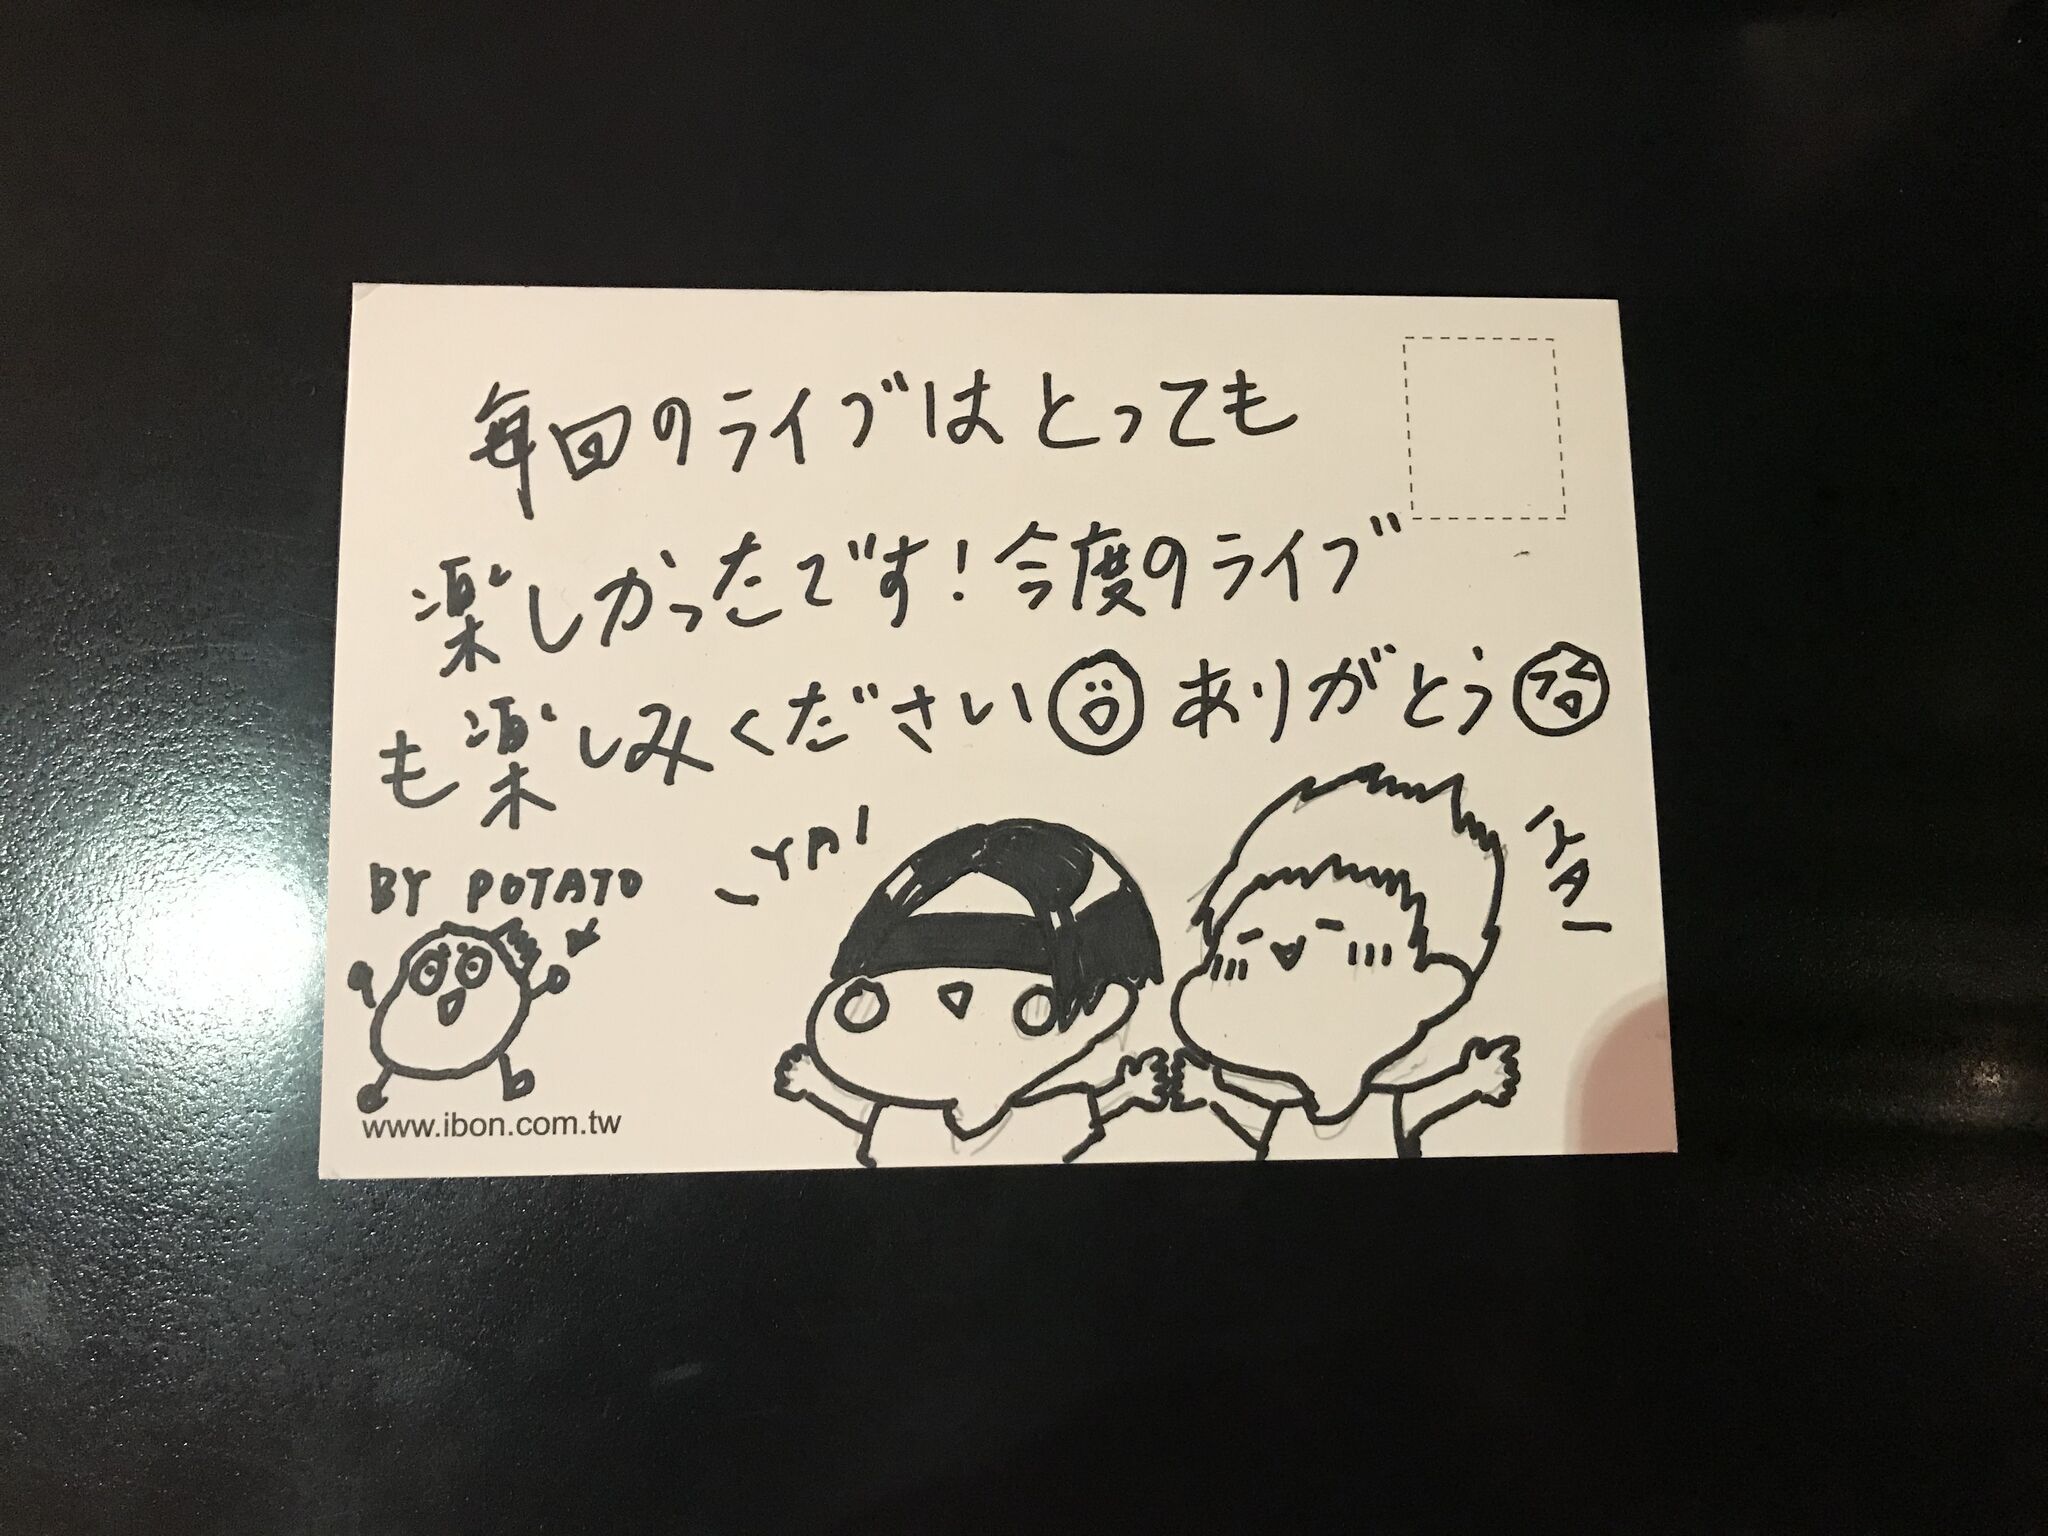 毎回のライブはとっても
楽しかったです！今度のライブ
も楽しみください ありがとう
BY POTATO
YAI
イター
www.ibon.com.tw